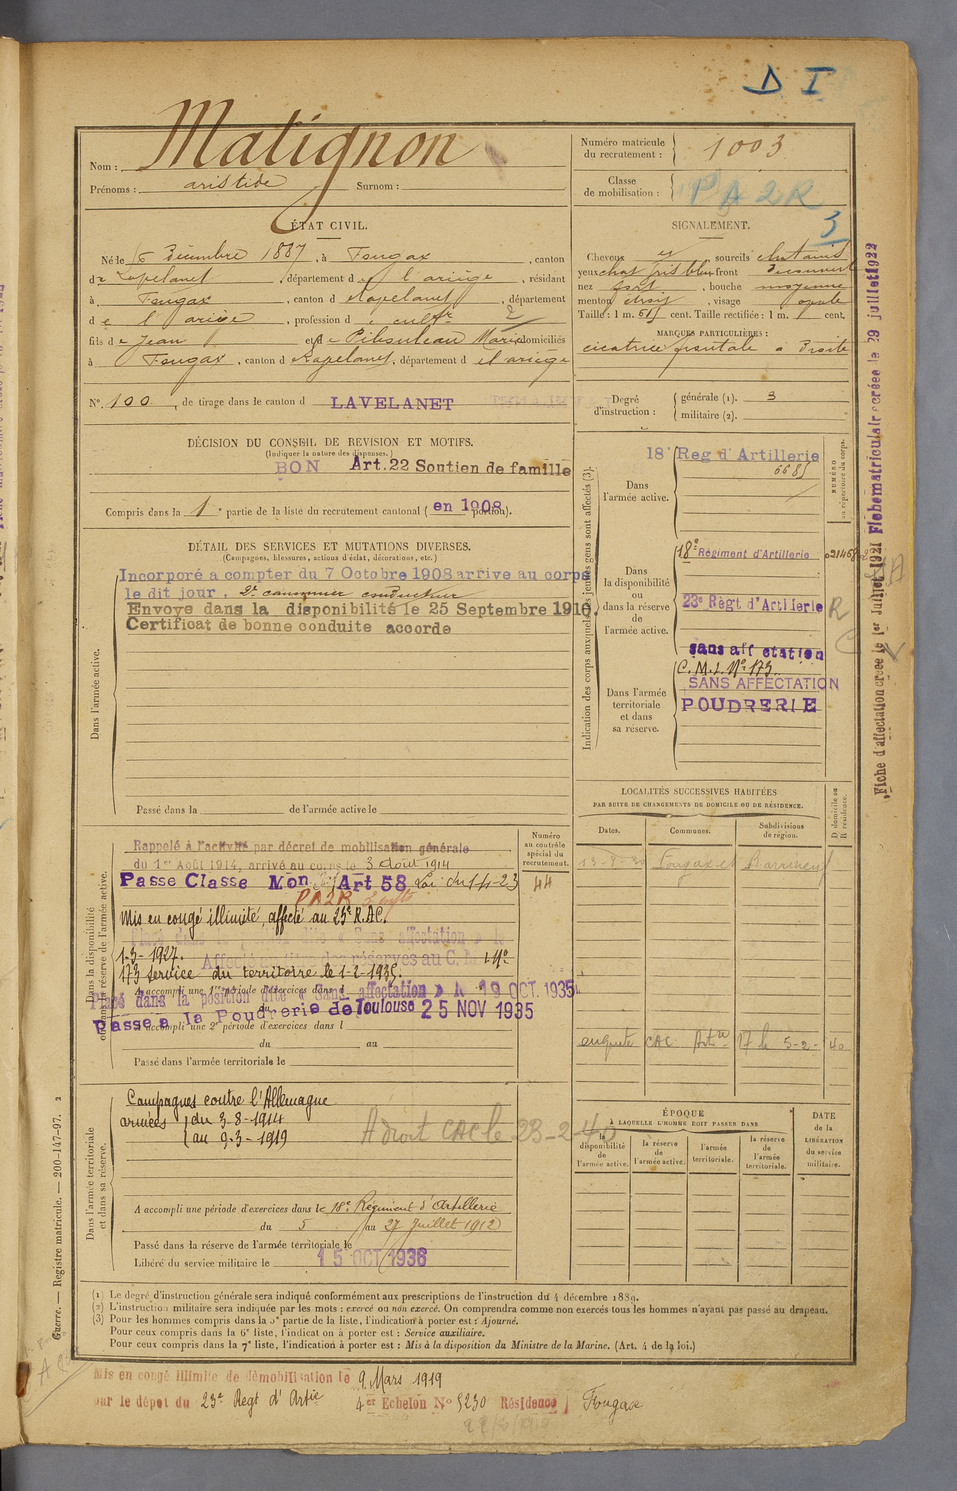 D I
Nom : Matignon
Prénoms : aristide Surnom :
Numéro matricule du recrutement : 1003
Classe de mobilisation : PA2R
3
ÉTAT CIVIL.
Né le 6 Décembre 1887, à Fougax, canton
de Lavelanet, département de l'ariège, résidant
à Fougax, canton de Lavelanet, département
de l'ariège, profession de cultr 2
fils de Jean et de Pibouleau Marie domiciliés
à Fougax, canton de Lavelanet, département de l'ariège
No 100 de tirage dans le canton d LAVELANET
SIGNALEMENT.
Cheveux et sourcils chatains
yeux chat. gris bleu front découvert
nez fort, bouche moyenne
menton étroit, visage ovale
Taille : 1 m. 615 cent. Taille rectifiée : 1 m. cent.
MARQUES PARTICULIÈRES :
cicatrice frontale a Droite
Degré d'instruction : générale (1). 3
militaire (2).
DÉCISION DU CONSEIL DE REVISION ET MOTIFS.
(Indiquer la nature des dispenses.)
BON Art. 22 Soutien de famille
Compris dans la 1e partie de la liste du recrutement cantonal ( en 1908 portion).
DÉTAIL DES SERVICES ET MUTATIONS DIVERSES.
(Campagnes, blessures, actions d'éclat, décorations, etc.)
Dans l'armée active.
Incorporé a compter du 7 Octobre 1908 arrive au corps
le dit jour. 2e canonnier conducteur
Envoye dans la disponibilité le 25 Septembre 1910.
Certificat de bonne conduite accorde
Passé dans la de l'armée active le
Indication des corps auxquels les jeunes gens sont affectés (3).
NUMÉRO au répertoire du corps.
Dans l'armée active.
18e Reg d'Artillerie
6685
Dans la disponibilité ou dans la réserve de l'armée active.
18e Régiment d'Artillerie
23e Règt d'Artillerie
R
sans affectation
Dans l'armée territoriale et dans sa réserve.
C.M.I. No 173
SANS AFFECTATION
POUDRERIE
Fiche d'affectation créée le 1er Juillet 1921 Fiche matriculaire créée le 29 juillet 1922
LOCALITÉS SUCCESSIVES HABITÉES
PAR SUITE DE CHANGEMENTS DE DOMICILE OU DE RÉSIDENCE.
Dates. Communes. Subdivisions de région. D. domicile ou R. résidence.
Fougax et Barrineuf
enquete CAC Artie 17 le 5-2-40
Dans la disponibilité ou dans la réserve de l'armée active.
Numéro au contrôle spécial du recrutement.
44
Rappelé à l'activité par décret de mobilisation générale
du 1er Août 1914, arrivé au corps le 3 Août 1914
Passe Classe Mon Art 58 Loi du 1-4-23
PA2R
Mis en congé illimité, affecté au 23e R.A.C.
1-3-1927.
173 service du territoire le 1-2-1935.
A accompli une 1re période d'exercices dans l
Placé dans la position dite « Sans affectation » le 19 OCT. 1935
Passe a la Poudrerie de Toulouse 25 NOV 1935
A accompli une 2e période d'exercices dans l
du au
Passé dans l'armée territoriale le
Dans l'armée territoriale et dans sa réserve.
Campagnes contre l'Allemagne
armées du 3-8-1914
au 9-3-1919
A droit CAC le 23-2-40
A accompli une période d'exercices dans le 18e Régiment d'Artillerie
du 5 au 27 Juillet 1912
Passé dans la réserve de l'armée territoriale le
Libéré du service militaire le 15 OCT 1936
ÉPOQUE
À LAQUELLE L'HOMME DOIT PASSER DANS
la disponibilité de l'armée active. la réserve de l'armée active. l'armée territoriale. la réserve de l'armée territoriale.
DATE de la LIBÉRATION du service militaire.
(1) Le degré d'instruction générale sera indiqué conformément aux prescriptions de l'instruction du 4 décembre 1889.
(2) L'instruction militaire sera indiquée par les mots : exercé ou non exercé. On comprendra comme non exercés tous les hommes n'ayant pas passé au drapeau.
(3) Pour les hommes compris dans la 5e partie de la liste, l'indication à porter est : Ajourné.
Pour ceux compris dans la 6e liste, l'indication à porter est : Service auxiliaire.
Pour ceux compris dans la 7e liste, l'indication à porter est : Mis à la disposition du Ministre de la Marine. (Art. 4 de la loi.)
Guerre. — Registre matricule. — 200-147-97. 2
Mis en congé illimité de démobilisation le 9 Mars 1919
par le dépot du 23e Regt d'Artie 4er Echelon No 5230 Résidence Fougax